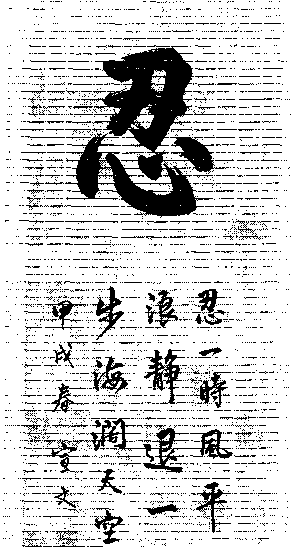 忍
忍一時風平
浪靜退一
步海闊天空
甲戌春宣文